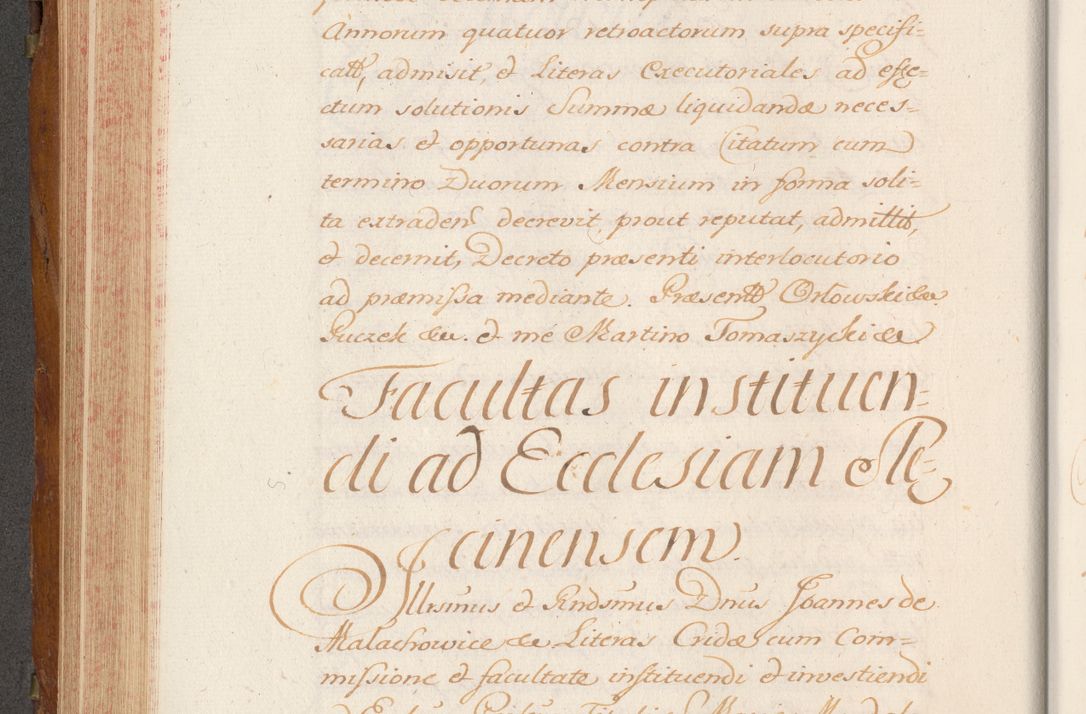 Annorum quatuor retroactorum supra specifi=
catt, admisit, & Literas Executoriales ad effe=
ctum solutionis Summæ liquidandæ neces=
sarias & opportunas contra Citatum cum
termino Duorum Mensium in forma soli=
ta extraden decrevit, prout reputat, admittit,
& decernit, Decreto præsenti interlocutorio
ad præmissa mediante. Præsentt Orłowski &c.
Guczek &c. & me Martino Tomaszycki &c
Facultas instituen=
di ad Ecclesiam
cinensem.
Illrsimus & Rndsimus Dnus Joannes de
Małachowice &c Literas Cridæ cum Com=
missione & facultate instituendi & investiendi